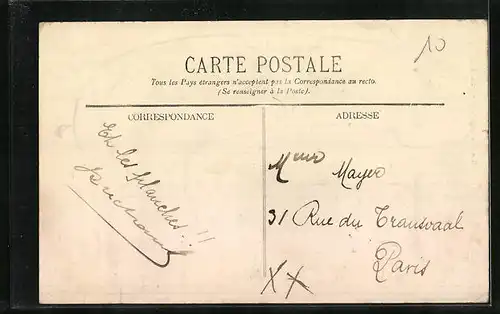 10
CARTE POSTALE
Tous les Pays étrangers n'acceptent pas la Correspondance au recto.
(Se renseigner à la Poste).
CORRESPONDANCE
ADRESSE
Et les planches!!
Mayer
31 Rue du Transvaal
Paris
XX